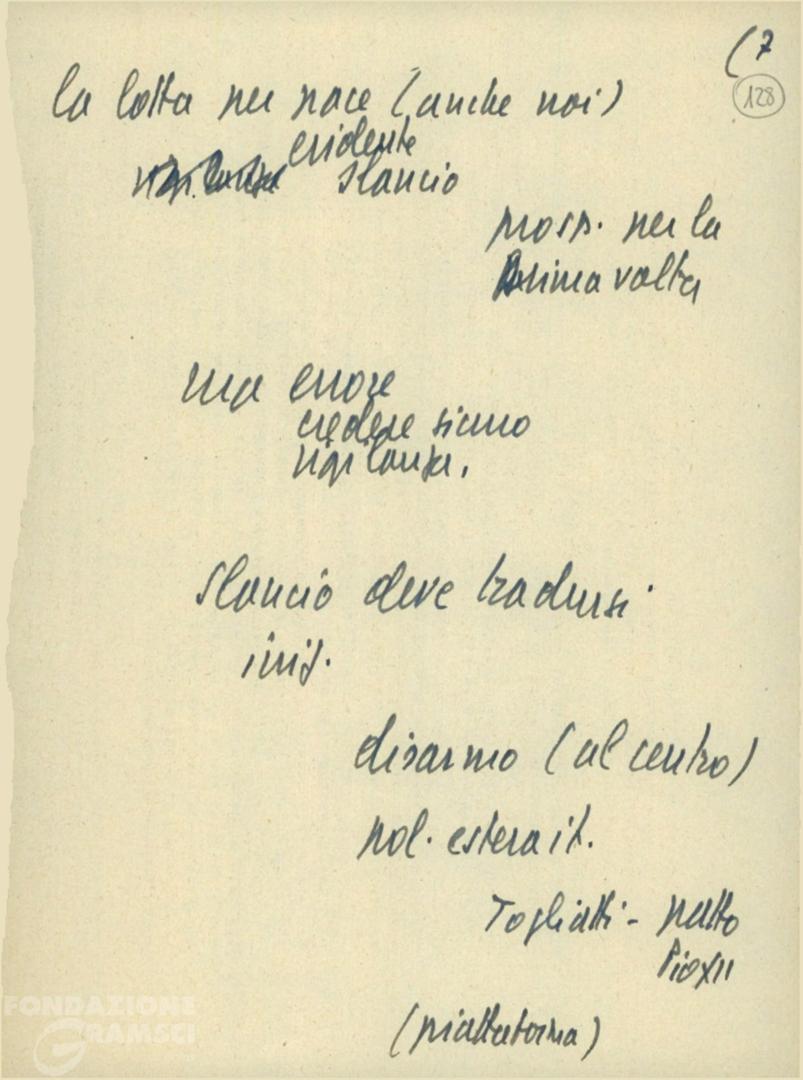 (7
128
la lotta per pace (anche noi)
evidente
slancio
prosp. per la
prima volta
ma errore
credere siamo
vigilanza.
slancio deve tradursi
iniz.
disarmo (al centro)
pol. estera it.
Togliatti - patto
Pio XII
(piattaforma)
FONDAZIONE
GRAMSCI